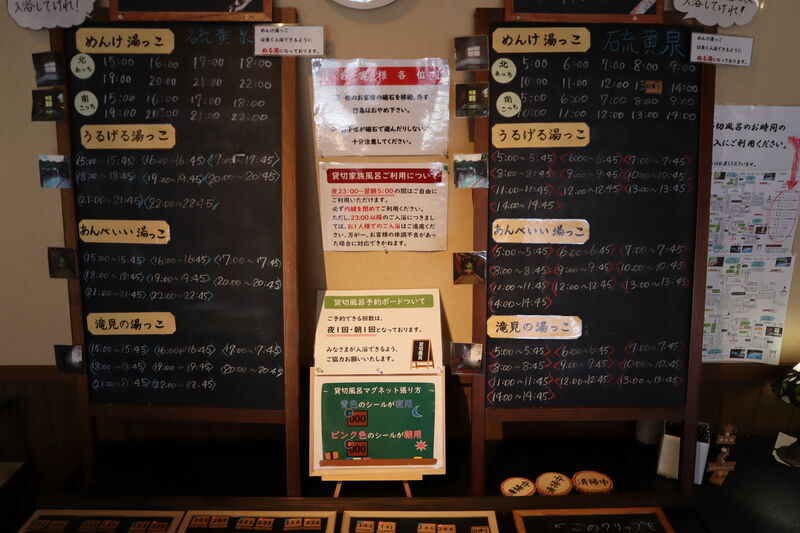 入浴してけれ!
めんけ 湯っこ
硫黄泉
めんけ湯っこ
は長く入浴できるように
ぬる湯になっております。
北
あっち
15:00 16:00 17:00 18:00
19:00 20:00 21:00 22:00
南
こっち
15:00 16:00 17:00 18:00
19:00 20:00 21:00 22:00
うるげる湯っこ
15:00~15:45 16:00~16:45 17:00~17:45
18:00~18:45 19:00~19:45 20:00~20:45
21:00~21:45 22:00~22:45
あんべいい 湯っこ
15:00~15:45 16:00~16:45 17:00~17:45
18:00~18:45 19:00~19:45 20:00~20:45
21:00~21:45 22:00~22:45
滝見の湯っこ
15:00~15:45 16:00~16:45 17:00~17:45
18:00~18:45 19:00~19:45 20:00~20:45
21:00~21:45 22:00~22:45
お客様各位
他のお客様の磁石を移動、外す
行為はおやめ下さい。
お子様が磁石で遊んだりしない
十分注意してください。
貸切家族風呂ご利用について
夜23:00~翌朝5:00の間はご自由に
ご利用いただけます。
必ず内鍵を閉めてご利用ください。
ただし、23:00以降のご入浴につきまし
ては、お1人様でのご入浴はご遠慮くだ
さい。万が一、お客様の体調不良があっ
た場合に対応できかねます。
貸切風呂予約ボードついて
ご予約できる回数は、
夜1回・朝1回となっております。
みなさまが入浴できるよう、
ご協力お願いいたします。
貸切風呂マグネット張り方
黄色のシールが夜用
000
ピンク色のシールが朝用
000
めんけ 湯っこ
硫黄泉
めんけ湯っこ
は長く入浴できるように
ぬる湯になっております。
北
あっち
5:00 6:00 7:00 8:00 9:00
10:00 11:00 12:00 14:00
南
こっち
5:00 6:00 7:00 8:00 9:00
10:00 11:00 12:00 13:00 14:00
うるげる湯っこ
5:00~5:45 6:00~6:45 7:00~7:45
8:00~8:45 9:00~9:45 10:00~10:45
11:00~11:45 12:00~12:45 13:00~13:45
14:00~14:45
あんべいい 湯っこ
5:00~5:45 6:00~6:45 7:00~7:45
8:00~8:45 9:00~9:45 10:00~10:45
11:00~11:45 12:00~12:45 13:00~13:45
14:00~14:45
滝見の湯っこ
5:00~5:45 6:00~6:45 7:00~7:45
8:00~8:45 9:00~9:45 10:00~10:45
11:00~11:45 12:00~12:45 13:00~13:45
14:00~14:45
入浴してけれ!
貸切風呂のお時間の
清掃中
清掃中
清掃中